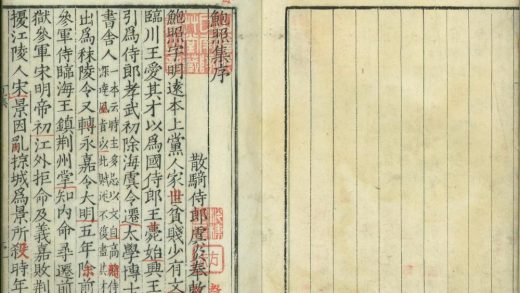 鮑照集序
散騎侍郎虞炎奉教
鮑照字明遠本上黨人家世貧賤少有文
臨川王愛其才以爲國侍郎王薨始興王
引爲侍郎孝武初除海虞令遷太學博士
書舍人
本云時主多忌以文自高趨侍
深達風旨以此賦述不復盡其
出爲秣陵令又轉永嘉令大明五年除前
參軍侍臨海王鎮荆州掌知内命尋遷前
獄參軍宋明帝初江外拒命及義嘉敗荆
擾江陵人宋景因亂掠城爲景所殺時年